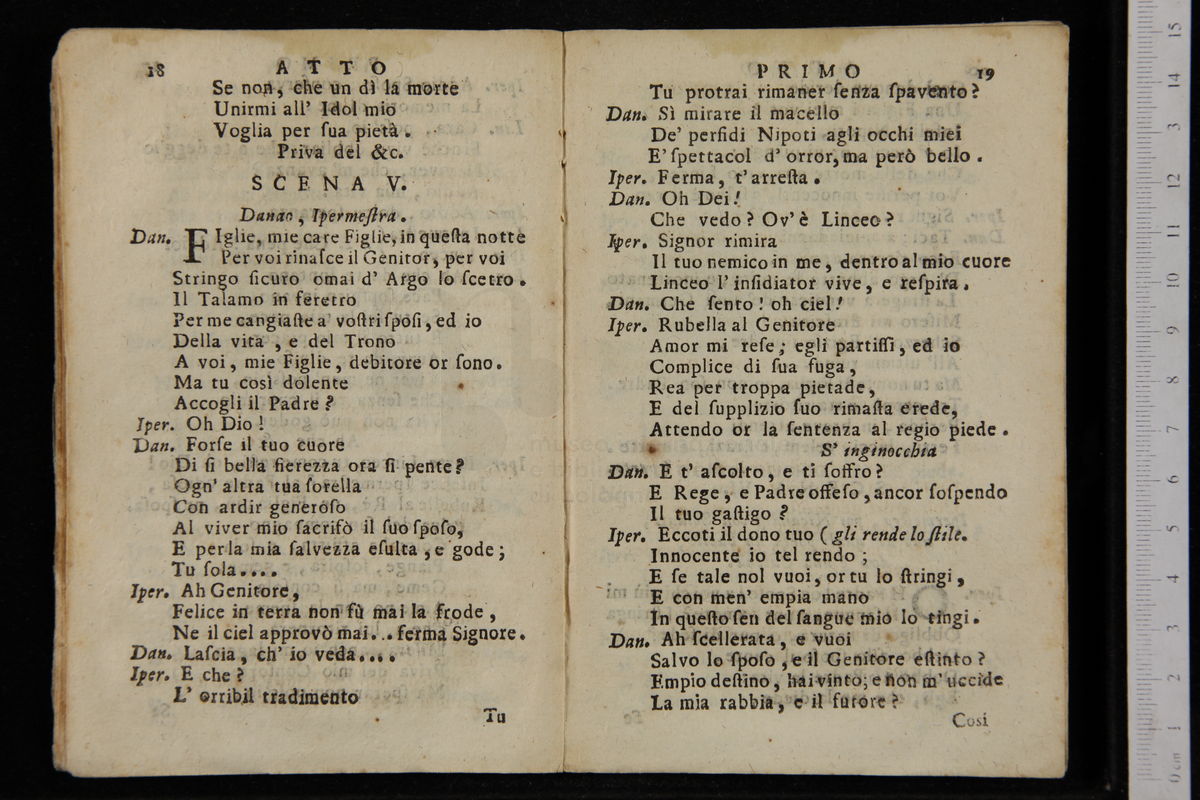 18 ATTO
Se non, che un dì la morte
Unirmi all' Idol mio
Voglia per ſua pietà.
Priva del &c.
SCENA V.
Danao, Ipermeſtra.
Dan. FIglie, mie care Figlie, in queſta notte
Per voi rinaſce il Genitor, per voi
Stringo ſicuro omai d' Argo lo ſcetro.
Il Talamo in feretro
Per me cangiaſte a' voſtri ſpoſi, ed io
Della vita, e del Trono
A voi, mie Figlie, debitore or ſono.
Ma tu così dolente
Accogli il Padre?
Iper. Oh Dio!
Dan. Forſe il tuo cuore
Di ſi bella fierezza ora ſi pente?
Ogn' altra tua ſorella
Con ardir generoſo
Al viver mio ſacrifò il ſuo ſpoſo,
E per la mia ſalvezza eſulta, e gode;
Tu ſola....
Iper. Ah Genitore,
Felice in terra non fù mai la frode,
Ne il ciel approvò mai... ferma Signore.
Dan. Laſcia, ch' io veda....
Iper. E che?
L' orribil tradimento
Tu
PRIMO 19
Tu protrai rimaner ſenza ſpavento?
Dan. Sì mirare il macello
De' perfidi Nipoti agli occhi miei
E' ſpettacol d' orror, ma però bello.
Iper. Ferma, t' arreſta.
Dan. Oh Dei!
Che vedo? Ov' è Linceo?
Iper. Signor rimira
Il tuo nemico in me, dentro al mio cuore
Linceo l' inſidiator vive, e reſpira.
Dan. Che ſento! oh ciel!
Iper. Rubella al Genitore
Amor mi reſe; egli partiſſi, ed io
Complice di ſua fuga,
Rea per troppa pietade,
E del ſupplizio ſuo rimaſta erede,
Attendo or la ſentenza al regio piede.
S' inginocchia
Dan. E t' aſcolto, e ti ſoffro?
E Rege, e Padre offeſo, ancor ſoſpendo
Il tuo gaſtigo?
Iper. Eccoti il dono tuo (gli rende lo ſtile.
Innocente io tel rendo;
E ſe tale nol vuoi, or tu lo ſtringi,
E con men' empia mano
In queſto ſen del ſangue mio lo tingi.
Dan. Ah ſcellerata, e vuoi
Salvo lo ſpoſo, e il Genitore eſtinto?
Empio deſtino, hai vinto; e non m' uccide
La mia rabbia, e il furore?
Cosi